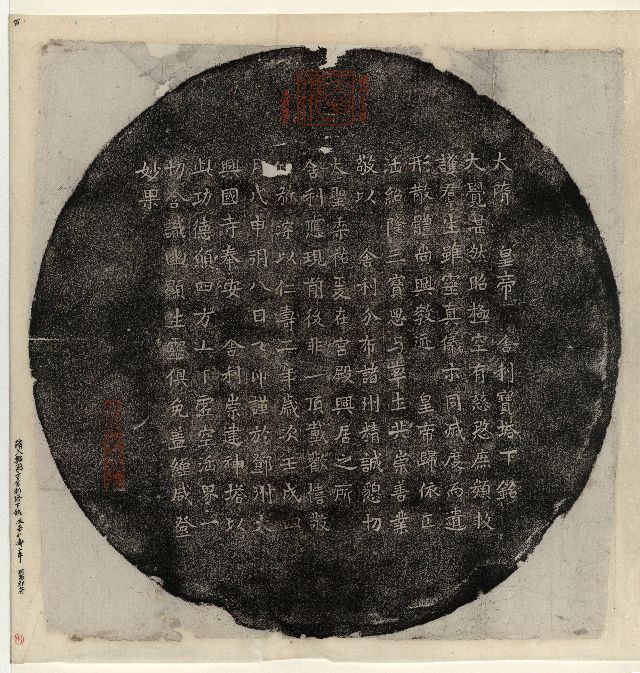 大隋 皇帝 舍利寶塔下銘
大覺湛然昭極空有慈愍庶類救
護群生雖靈真儀亦同滅度遺
形散體尚興教迹 皇帝歸依正
法紹隆三寶思与率土共崇善業
敬以 舍利分布諸州精誠懇切
大聖垂祐爰在宮殿興居之所
舍利應現前後非一頂戴歡憘敬
弥深以仁壽二年歲次壬戌
月戊申朔八日乙卯謹於鄧州大
興國寺奉安 舍利崇建神塔以
此功德願四方上下虛空法界一
切含識幽顯生靈俱免蓋纏咸登
妙果